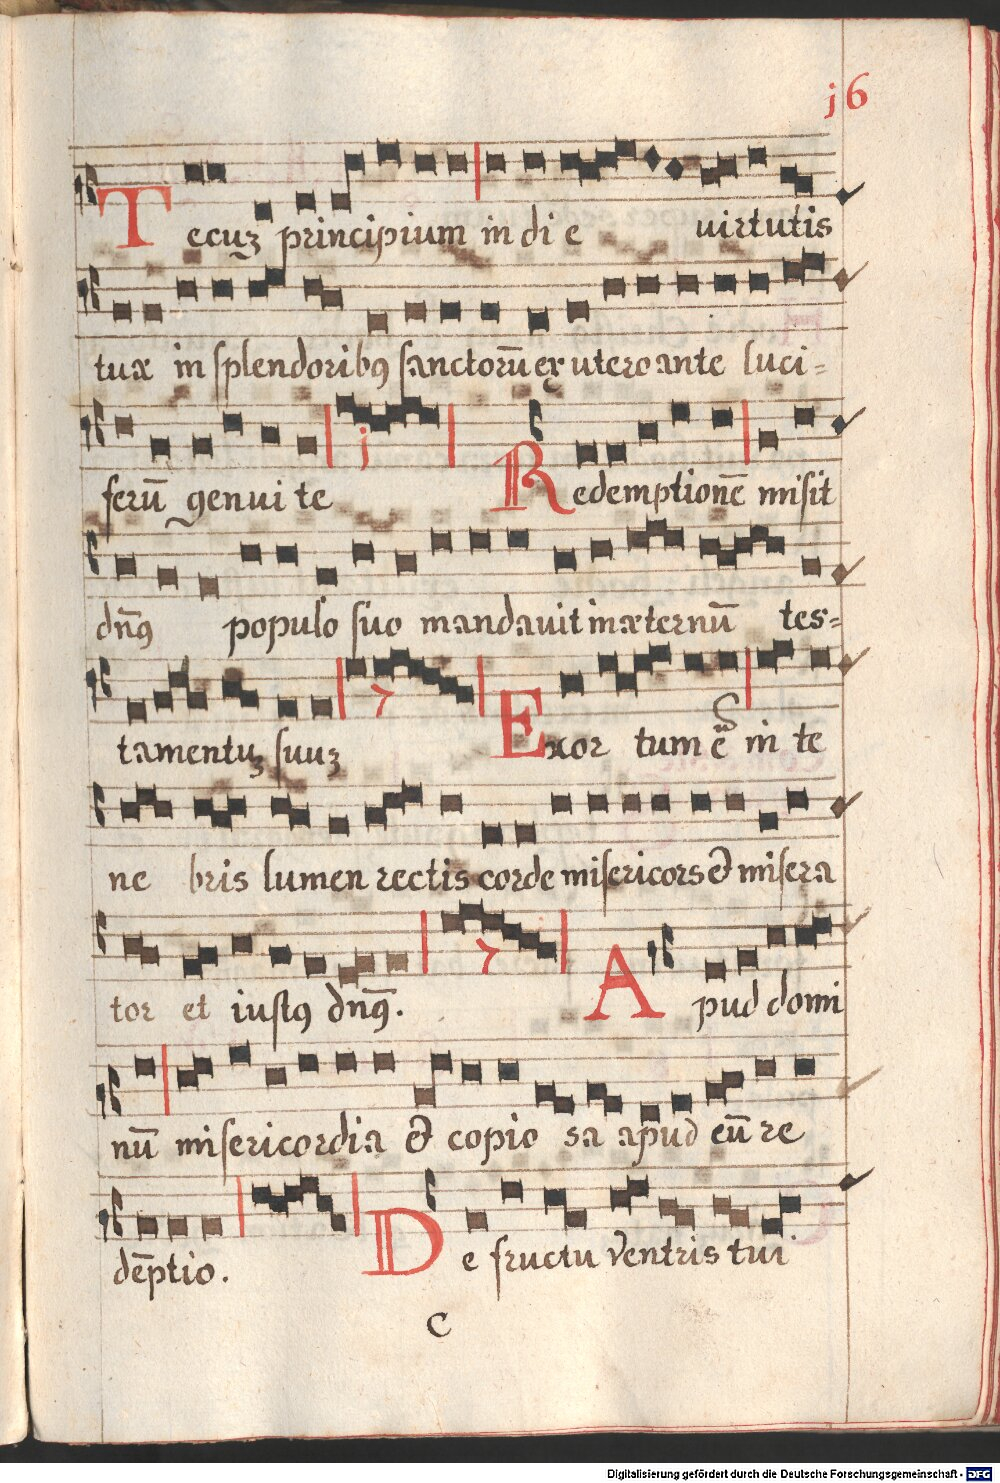 j6
Tecuꝫ principium in di e uirtutis
tuæ in splendoribꝰ sanctorū ex utero ante luci=
ferū genui te j Redemptionē misit
dn̄s populo suo mandauit in æternū tes=
tamentuꝫ suuꝫ 7 Exor tum ē in te
ne bris lumen rectis corde misericors & misera
tor et iustꝰ dn̄s. 7 Apud domi
nū misericordia & copio sa apud eū re
dēptio. De fructu Ventris tui
C
Digitalisierung gefördert durch die Deutsche Forschungsgemeinschaft - DFG